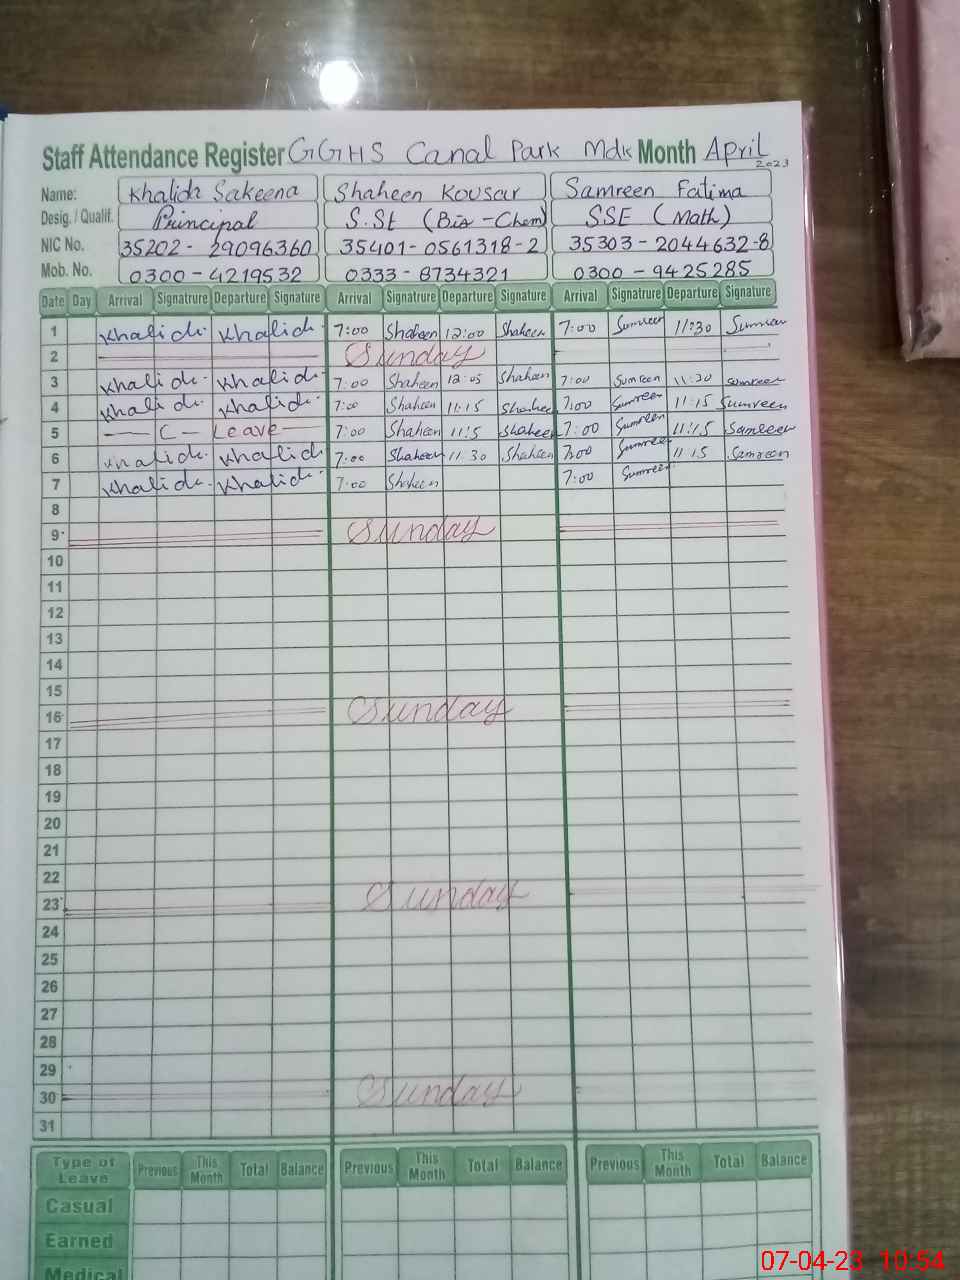 Staff Attendance Register GGHS Canal Park Mdk Month April
2023
Name: Khalida Sakeena Shaheen Kousar Samreen Fatima
Desig. / Qualif. Principal S.St (Bio - Chem) SSE (Math)
NIC No. 35202 - 29096360 35401-0561318-2 35303-2044632-8
Mob. No. 0300-4219532 0333-8734321 0300-9425285
Date Day Arrival Signatrure Departure Signature Arrival Signatrure Departure Signature Arrival Signatrure Departure Signature
1 Khalida Khalida 7:00 Shaheen 12:00 Shaheen 7:00 Sumreen 11:30 Sumreen
2 Sunday
3 Khalida Khalida 7:00 Shaheen 12:05 Shaheen 7:00 Sumreen 11:30 Sumreen
4 Khalida Khalida 7:00 Shaheen 11:15 Shaheen 7:00 Sumreen 11:15 Sumreen
5 C - Leave 7:00 Shaheen 11:5 Shaheen 7:00 Sumreen 11:15 Samreen
6 Khalida Khalida 7:00 Shaheen 11:30 Shaheen 7:00 Sumreen 11:15 Samreen
7 Khalida Khalida 7:00 Shaheen 7:00 Sumreen
8
9 Sunday
10
11
12
13
14
15
16 Sunday
17
18
19
20
21
22
23 Sunday
24
25
26
27
28
29
30 Sunday
31
Type of Leave Previous This Month Total Balance Previous This Month Total Balance Previous This Month Total Balance
Casual
Earned
Medical
07-04-23 10:54